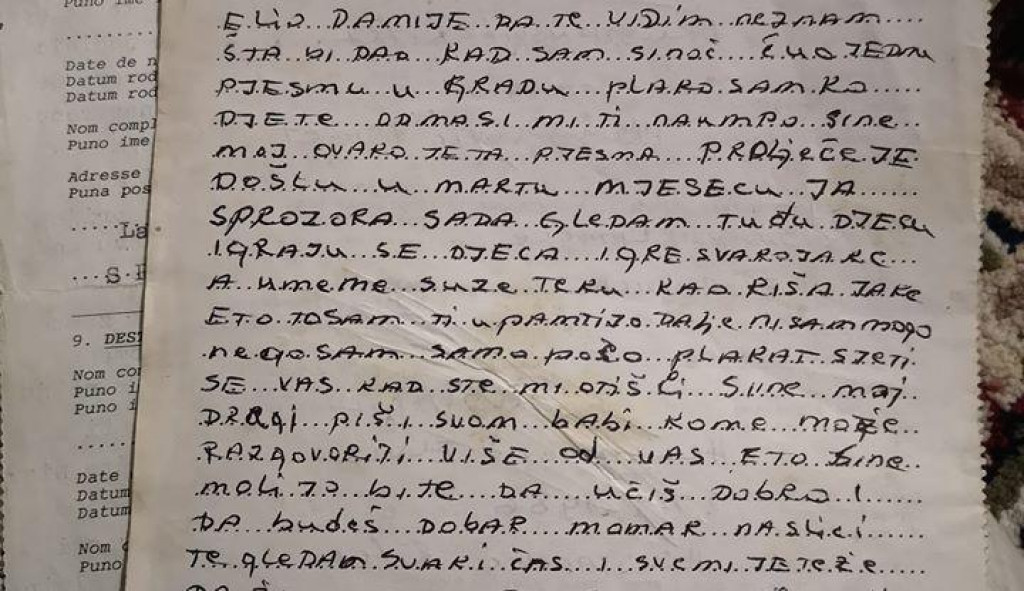 Puno ime
Date de n
Datum rod
Datum rod
Nom compl
Puno ime
Adresse
Puna pos
La
S.
9. DEST
Nom co
Puno i
Puno i
Date
Datum
Datum
Nom
Puno
ELIO..DAMIJE..DA..TE..VIDIM..NEZNAM....
ŠTA..BI..DAO..KAD..SAM..SINOĆ...ČUO JEDNU
PJESMU..U..GRADU...PLAKO.SAM.KO.....
DJETE..ODMA S.I.M.I..TI..NAUMPO..SINE..
MOJ..OVAKO..JE TA..PJESMA...PROLJEČE JE.
DOŠLU...U..MARTU...MJESECU..JA......
SPROZORA..SADA..GLEDAM..TUĐU DJECU
.IGRAJU..SE..DJECA..IGRE.SVAKOJAKE...
A..UMEME..SUZE..TEKU..KAO.KIŠA.JAKE
ETO.TOSAM..TI UPAMTIJO.DALJE.NISAM MOGO
.NEGO.SAM..SAMO.POČO..PLAKAT.SJETI.
SE...VAS..KAD..STE..MI.OTIŠLI..SINE..MOJ..
DRAGI..PIŠ.I..SVOM..BABI..KOME..MOŽE..
RAZGOVORITI..VIŠE..OD...VAS..ETO.SINE..
MOLIJO..BI.TE..DA..UČIŠ..DOBRO.I......
DA..BUDEŠ...DOBAR...MOMAK..NA SLICI
TE.GLEDAM.SVAK.I..ČAS..I..SVE MI.JE TEŽE.....